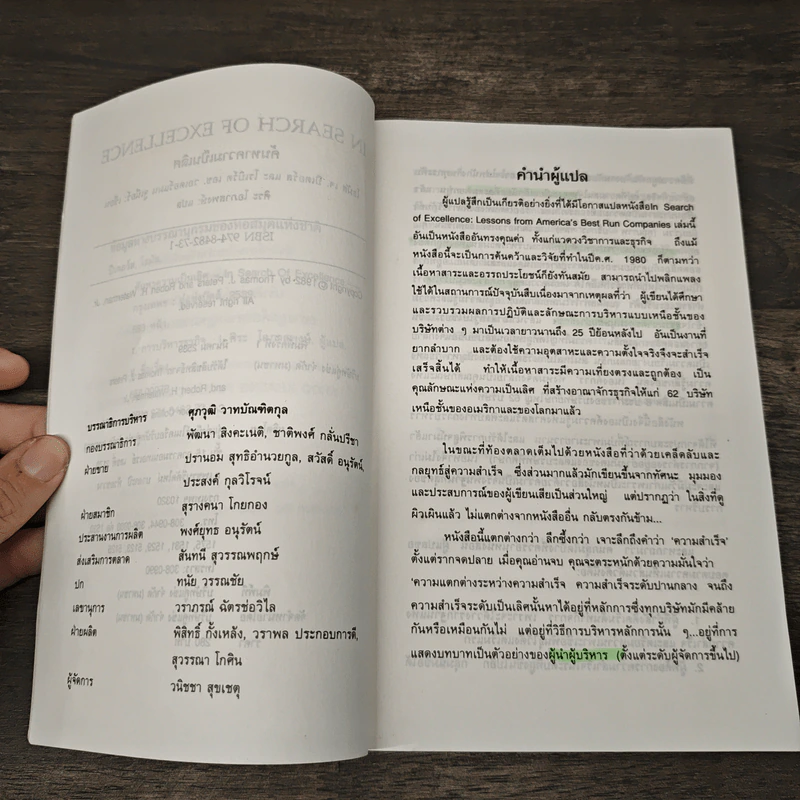 บรรณาธิการบริหาร ศุภวุฒิ วาทบัณฑิตกุล
กองบรรณาธิการ พัฒนา สิงคะเนติ, ชาติพงศ์ กลั่นปรีชา
ฝ่ายขาย ปรานอม สุทธิอำนวยกูล, สวัสดิ์ อนุรัตน์,
ประสงค์ กุลวิโรจน์
ฝ่ายสมาชิก สุรางคนา โกยกอง
ประสานงานการผลิต พงศ์ยุทธ อนุรัตน์
ส่งเสริมการตลาด สันทนี สุวรรณพฤกษ์
ปก ทนัย วรรณชัย
เลขานุการ วราภรณ์ ฉัตรช่อวิไล
ฝ่ายผลิต พิสิทธิ์ กั้งเหลัง, วราพล ประกอบการดี,
สุวรรณา โกศิน
ผู้จัดการ วนิชชา สุขเชตุ
คำนำผู้แปล
ผู้แปลรู้สึกเป็นเกียรติอย่างยิ่งที่ได้มีโอกาสแปลหนังสือIn Search
of Excellence: Lessons from America's Best Run Companies เล่มนี้
อันเป็นหนังสืออันทรงคุณค่า ทั้งแก่แวดวงวิชาการและธุรกิจ ถึงแม้
หนังสือนี้จะเป็นการค้นคว้าและวิจัยที่ทำในปีค.ศ. 1980 ก็ตามทว่า
เนื้อหาสาระและอรรถประโยชน์ก็ยังทันสมัย สามารถนำไปพลิกแพลง
ใช้ได้ในสถานการณ์ปัจจุบันสืบเนื่องมาจากเหตุผลที่ว่า ผู้เขียนได้ศึกษา
และรวบรวมผลการปฏิบัติและลักษณะการบริหารแบบเหนือชั้นของ
บริษัทต่าง ๆ มาเป็นเวลายาวนานถึง 25 ปีย้อนหลังไป อันเป็นงานที่
ยากลำบาก และต้องใช้ความอุตสาหะและความตั้งใจจริงจึงจะสำเร็จ
เสร็จสิ้นได้ ทำให้เนื้อหาสาระมีความเที่ยงตรงและถูกต้อง เป็น
คุณลักษณะแห่งความเป็นเลิศ ที่สร้างอาณาจักรธุรกิจให้แก่ 62 บริษัท
เหนือชั้นของอเมริกาและของโลกมาแล้ว
ในขณะที่ท้องตลาดเต็มไปด้วยหนังสือที่ว่าด้วยเคล็ดลับและ
กลยุทธ์สู่ความสำเร็จ ซึ่งส่วนมากแล้วมักเขียนขึ้นจากทัศนะ มุมมอง
และประสบการณ์ของผู้เขียนเสียเป็นส่วนใหญ่ แต่ปรากฏว่า ในสิ่งที่ดู
ผิวเผินแล้ว ไม่แตกต่างจากหนังสืออื่น กลับตรงกันข้าม...
หนังสือนี้แตกต่างกว่า ลึกซึ้งกว่า เจาะลึกถึงคำว่า 'ความสำเร็จ'
ตั้งแต่รากจดปลาย เมื่อคุณอ่านจบ คุณจะตระหนักด้วยความมั่นใจว่า
'ความแตกต่างระหว่างความสำเร็จ ความสำเร็จระดับปานกลาง จนถึง
ความสำเร็จระดับเป็นเลิศนั้นหาได้อยู่ที่หลักการซึ่งทุกบริษัทมักมีคล้าย
กันหรือเหมือนกันไม่ แต่อยู่ที่วิธีการบริหารหลักการนั้น ๆ...อยู่ที่การ
แสดงบทบาทเป็นตัวอย่างของผู้นำผู้บริหาร (ตั้งแต่ระดับผู้จัดการขึ้นไป)